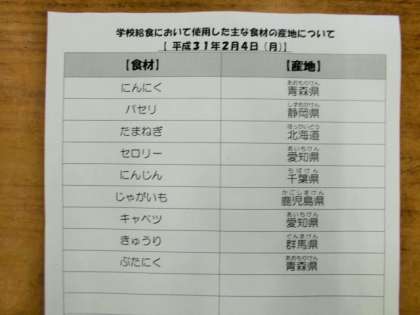 学校給食において使用した主な食材の産地について
【 平成31年2月4日 (月)】
【食材】 【産地】
にんにく 青森県
あおもりけん
パセリ 静岡県
しずおかけん
たまねぎ 北海道
ほっかいどう
セロリー 愛知県
あいちけん
にんじん 千葉県
ちばけん
じゃがいも 鹿児島県
かごしまけん
キャベツ 愛知県
あいちけん
きゅうり 群馬県
ぐんまけん
ぶたにく 青森県
あおもりけん